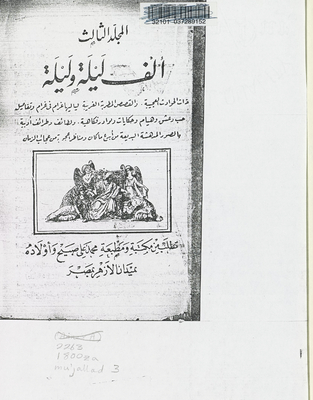 32101 037289152
المجلد الثالث
ألف ليلة وليلة
ذات الحوادث العجيبة والقصص المطربة الغريبة لياليها غرام في غرام وتفاصيل
حب وعشق وهيام وحكايات ونوادر فكاهية ولطائف وطرائف أدبية
بالصور المدهشة البديعة من أبدع ما كان ومناظر أعجوبة من عجائب الزمان
تطلب من مكتبة ومطبعة محمد علي صبيح وأولاده
بميدان الأزهر بمصر
2263
mujallad 3